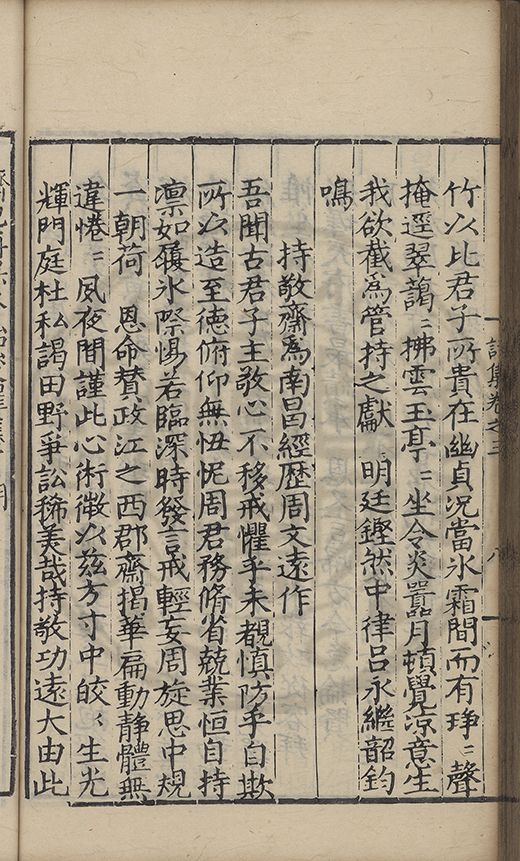 竹以比君子所貴在幽貞況當氷霜間而有琤〻聲
掩逕翠藹〻拂雲玉亭〻坐令炎嚣月頓覺涼意生
我欲截爲管持之獻 明廷鏗然中律吕永繼韶鈞
鳴
持敬齋爲南昌經歷周文遠作
吾聞古君子主敬心不移戒懼乎未覩慎防乎自欺
所以造至德俯仰無忸怩周君務脩省兢業恒自持
凛如履氷際惕若臨深時發言戒輕妄周旋思中規
一朝荷 恩命賛政江之西郡齋揭華扁動静體無
違惓〻夙夜間謹此心術微以兹方寸中皎〻生光
輝門庭杜私謁田野爭訟稀美哉持敬功遠大由此
詩集卷之三 八